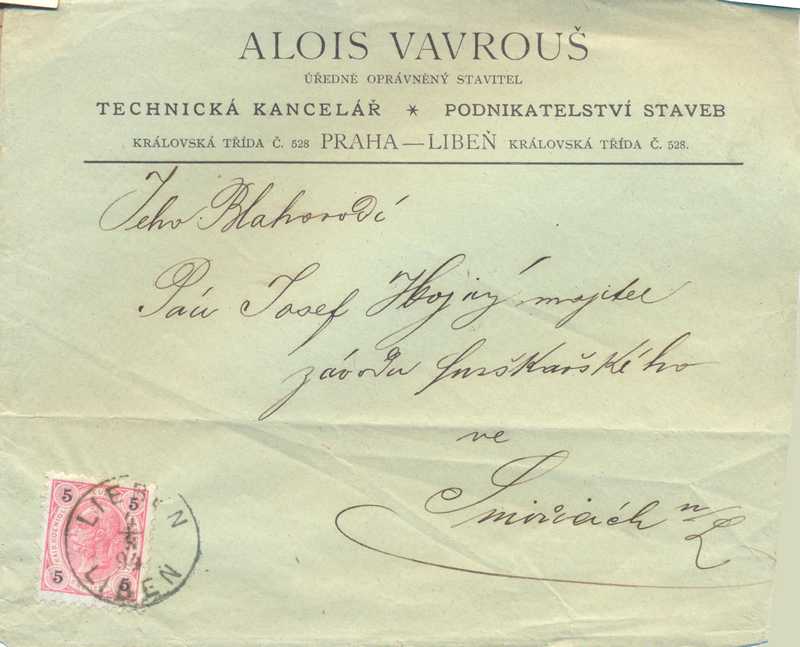 ALOIS VAVROUŠ
ÚŘEDNĚ OPRÁVNĚNÝ STAVITEL
TECHNICKÁ KANCELÁŘ * PODNIKATELSTVÍ STAVEB
KRÁLOVSKÁ TŘÍDA Č. 528 PRAHA—LIBEŇ KRÁLOVSKÁ TŘÍDA Č. 528.
Jeho Blahorodí
Pán Josef Hojný majitel
závodu
ve
Smiřicích n/L
5 5
LIEBEN
5 5
LIBEŇ